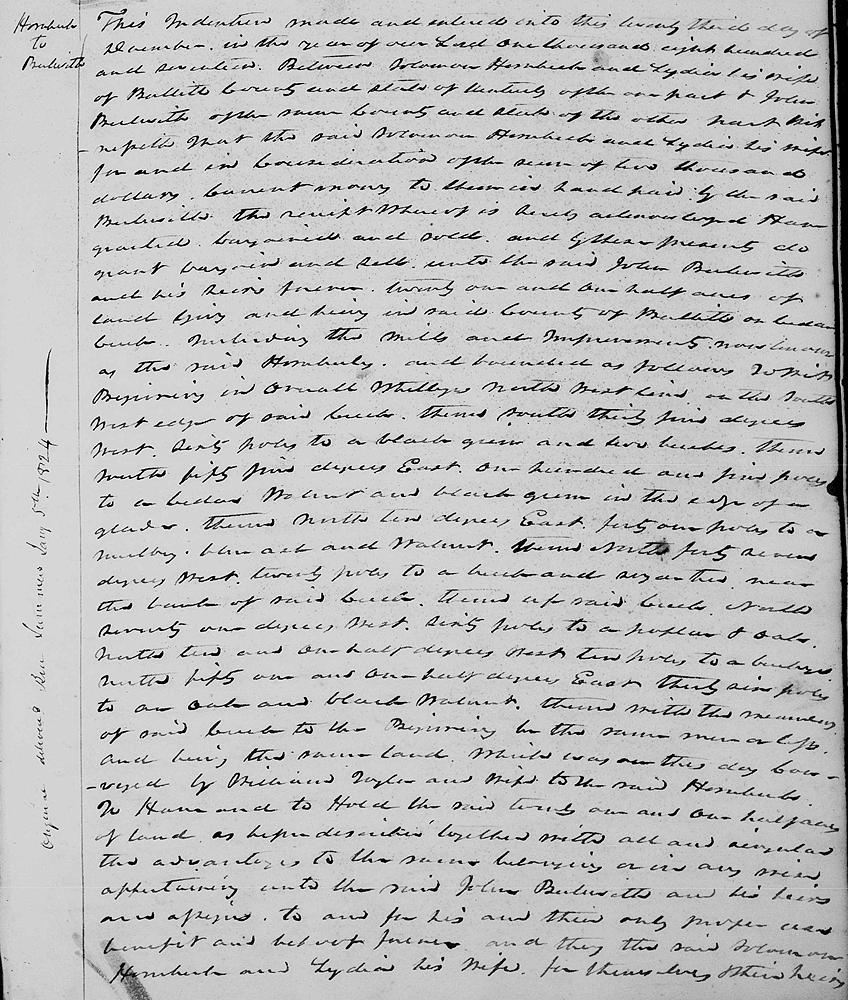 Hornbeck
to
Beckwith
This Indenture made and entered into this twenty third day of
December. in the year of our Lord One thousand eight hundred
and seventeen. Between Solomon Hornbeck and Lydia his wife
of Bullitt County and State of Kentucky of the one part & John
Beckwith of the same County and State of the other part Wit
nesseth that the said Solomon Hornbeck and Lydia his wife.
for and in Consideration of the sum of two thousand
dollars. Current money to them in hand paid by the said
Beckwith the receipt Whereof is hereby acknowledged Have
granted. bargained and sold. and by these presents do
grant bargain and Sell. unto the said John Beckwith
and his heirs forever. twenty one and One half acres of
land lying and being in said County of Bullitt on Cedar
Creek. Including the Mills and Improvements now known
as the said Hornbecks. and bounded as follows To Wit
Beginning in Overall North West line. on the South
West edge of said Creek. thence South thirty five degrees
West. Sixty poles to a black gum and two beeches. thence
South fifty five degrees East. One hundred and five poles
to a Cedar Walnut and black gum in the edge of a
glade. thence North ten degrees East. forty one poles to a
mulbry. blue ash and Walnut. thence North forty seven
degrees West. twenty poles to a beech and near
the bank of said Creek. thence up said Creek. North
seventy one degrees West. Sixty poles to a poplar & oak.
North ten and One half degrees West ten poles to a
North fifty one and One half degrees East thirty six poles
to an Oak and black Walnut. thence with the meanders
of said Creek to the Beginning be the same more or less.
and being the same land. Which was on this day Con-
-veyed by William Taylor and Wife to the said Hornbeck.
To Have and to Hold the said twenty one and One half acres
of land. as before described together with all and singular
the advantages to the same belonging or in any wise
appertaining unto the said John Beckwith and his heirs
and assigns. to and for his and their only proper use
benefit and behoof forever. and they the said Solomon
Hornbeck and Lydia his Wife. for themselves & their heirs
Original delivered Ben Summers Jany 5th. 1824